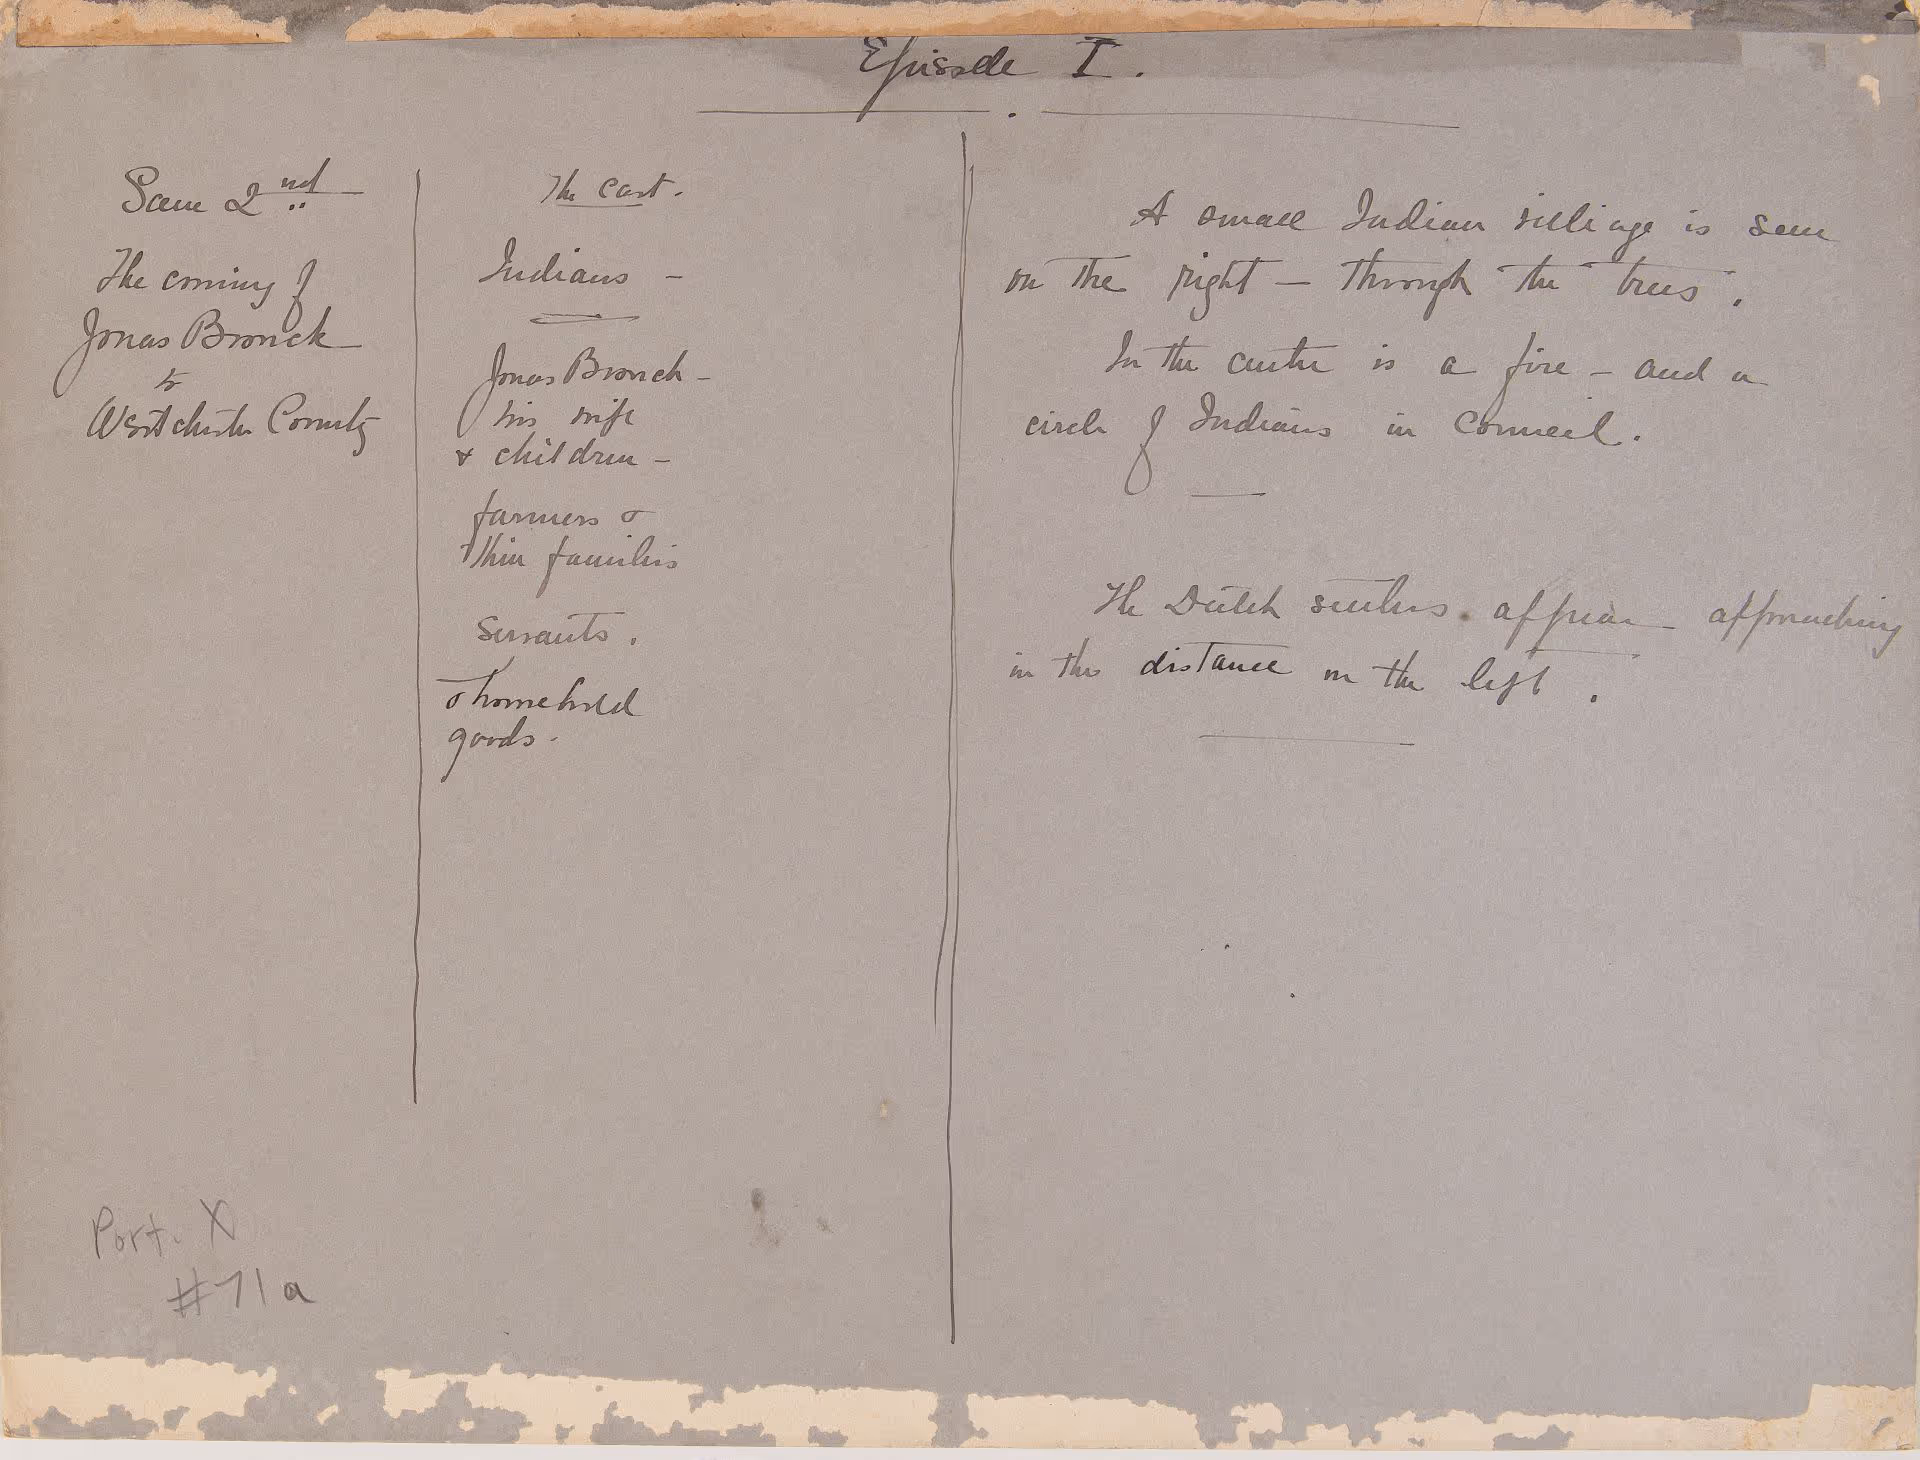 Episode I.
Scene 2nd
The coming of
Jonas Bronck
to
Westchester County
The cast.
Indians -
Jonas Bronck -
his wife
& children -
farmers &
their families
Servants.
& household
goods.
A small Indian village is seen
on the right - through the trees.
In the centre is a fire - and a
circle of Indians in Council.
The Dutch settlers appear - approaching
in the distance on the left.
Port. X
#71a